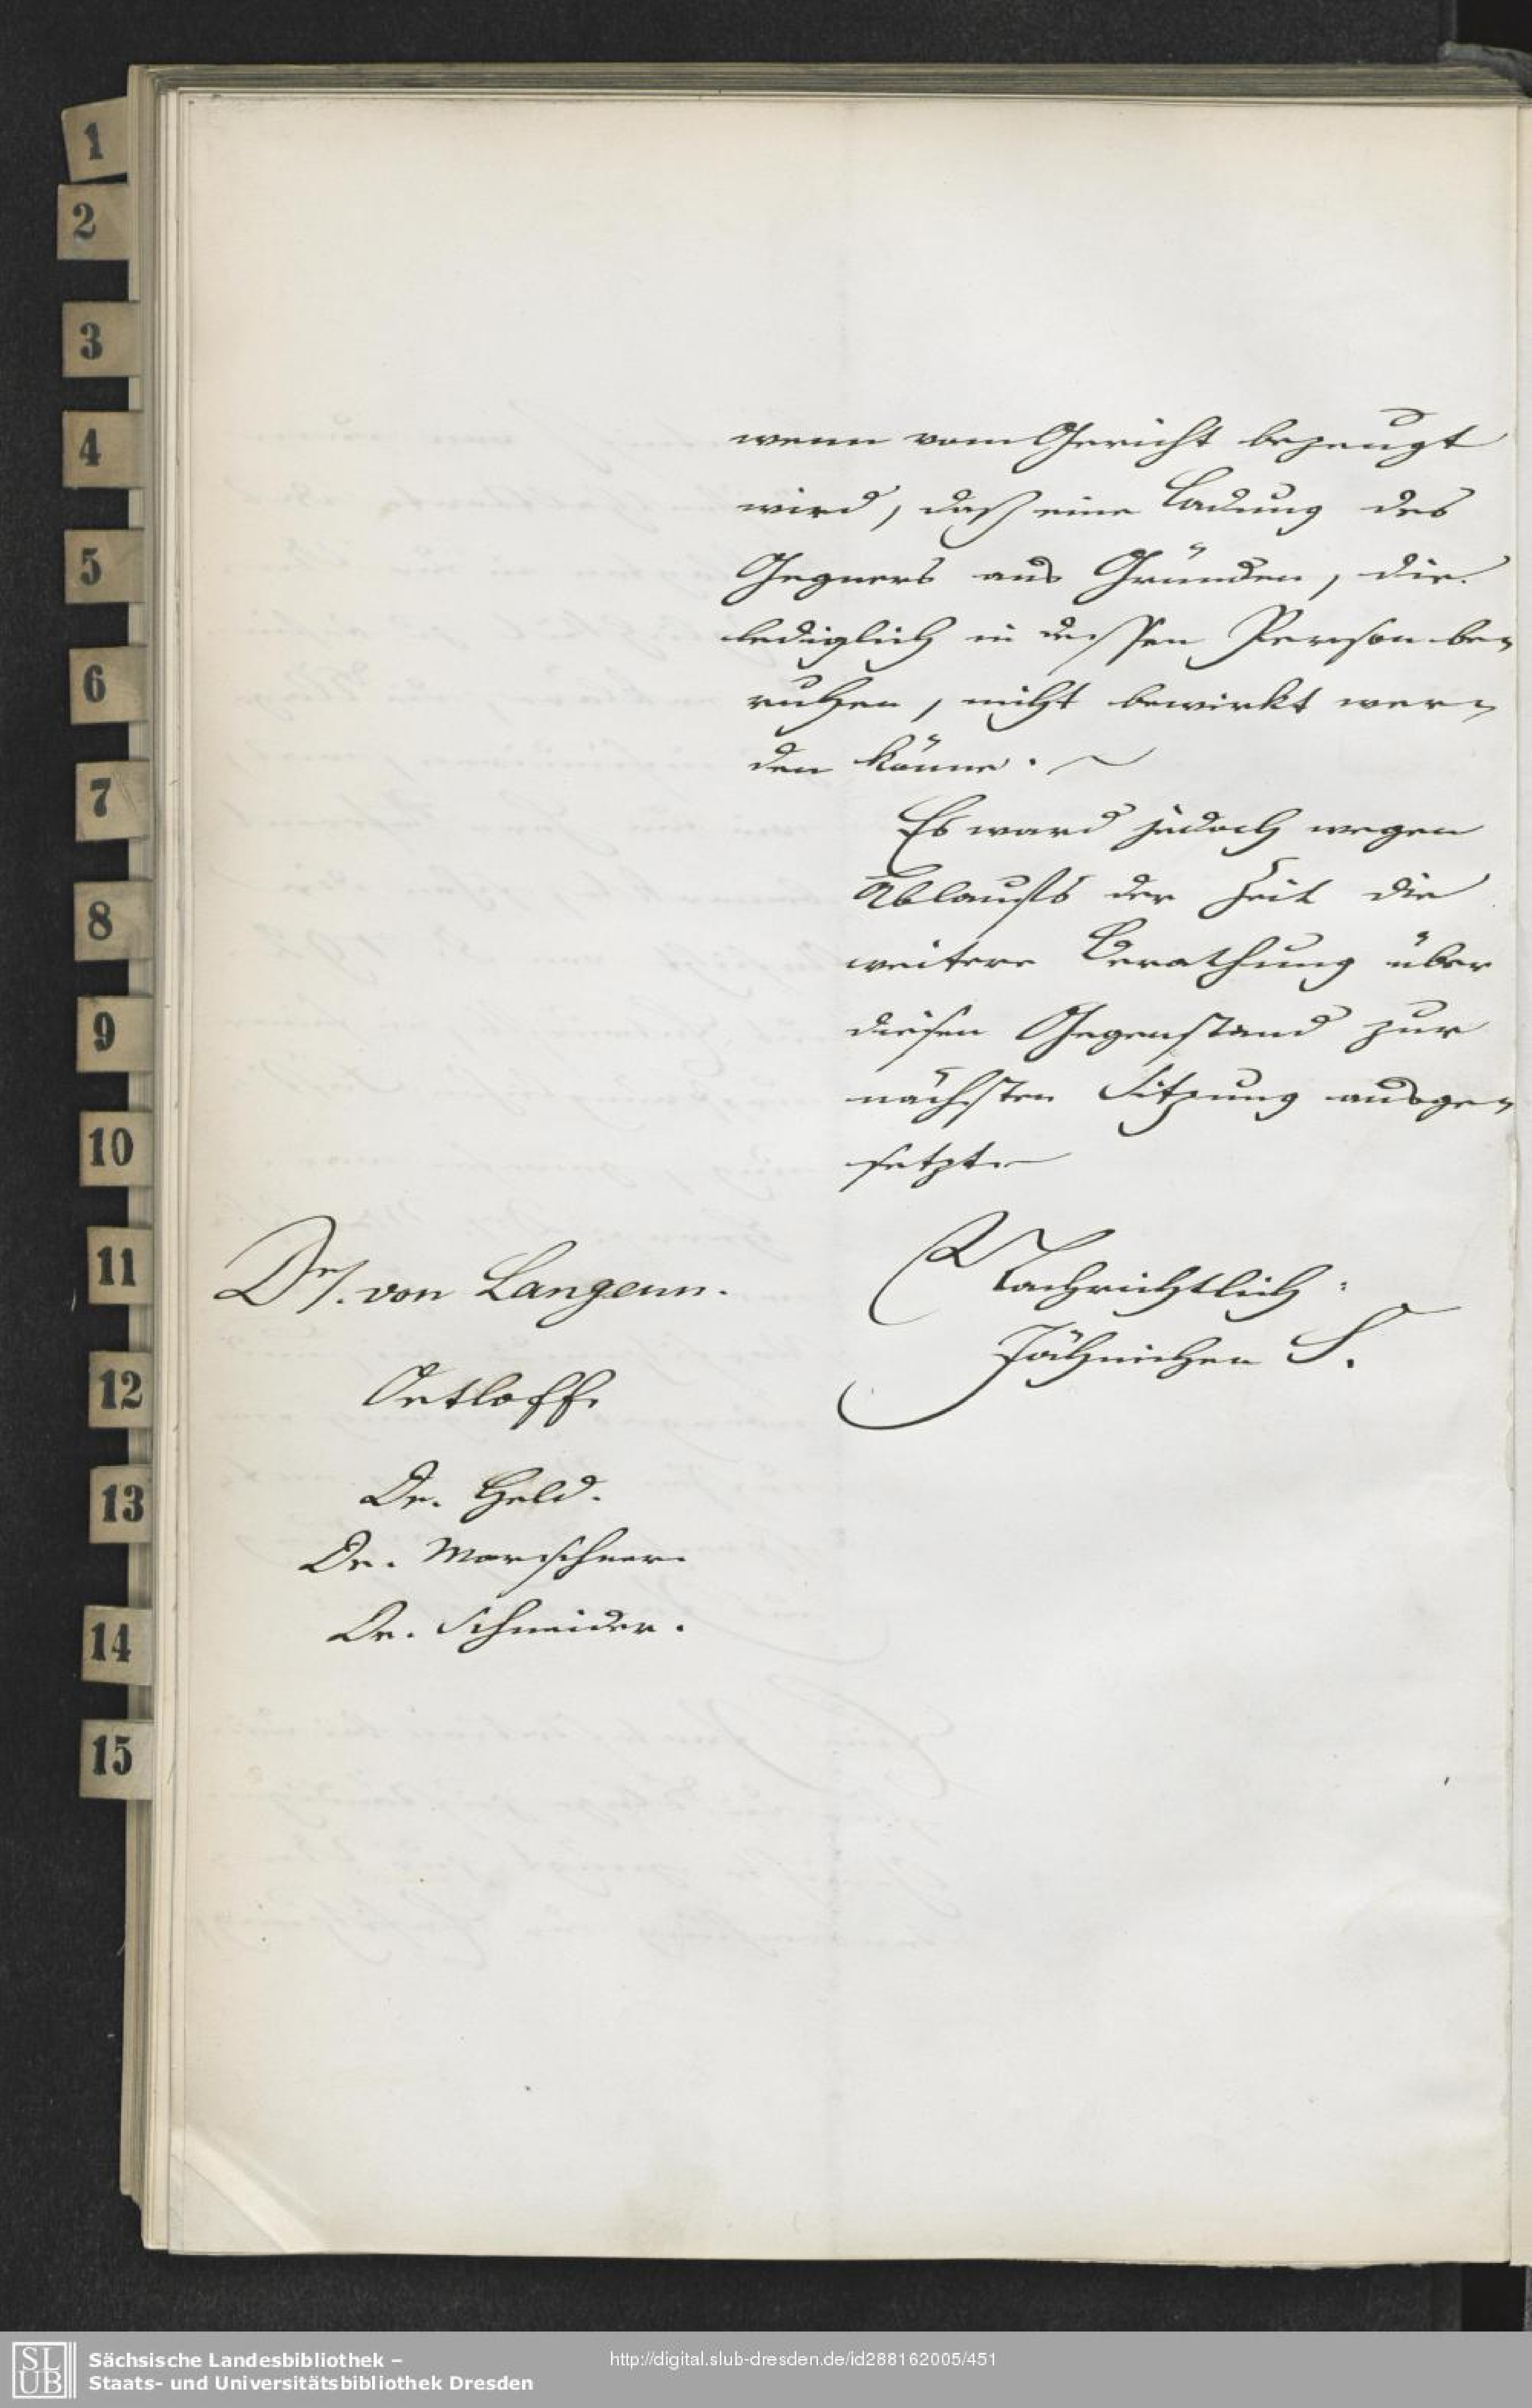 1
2
3
4
5
6
7
8
9
10
11
12
13
14
15
wenn vom Gericht bezeugt
wird, daß eine Ladung des
Gegners aus Gründen, die
lediglich in dessen Person be-
ruhen, nicht bewirkt wer-
den könne.
Es ward jedoch wegen
Ablaufs der Zeit die
weitere Berathung über
diesen Gegenstand zur
nächsten Sitzung ausge-
setzt.
Nachrichtlich:
Jähnichen S.
Dr. von Langenn.
Ortloff.
Dr. Held.
Dr. Marschner.
Dr. Schneider.
SLUB
Sächsische Landesbibliothek –
Staats- und Universitätsbibliothek Dresden
http://digital.slub-dresden.de/id288162005/451